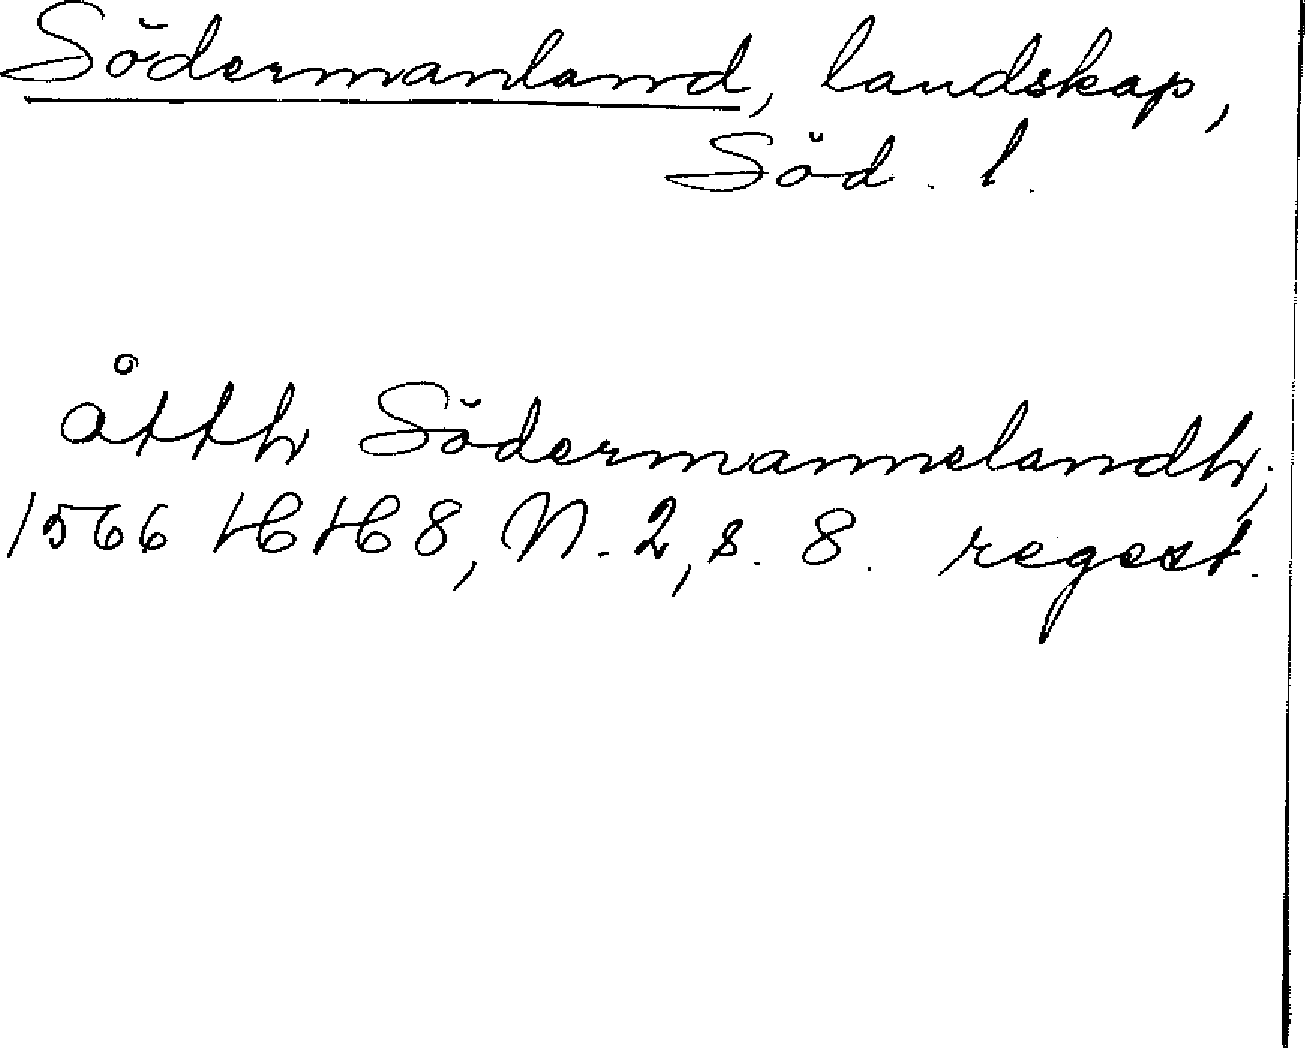 Södermanland, landskap,
Söd. l.
åtth Södermannelandh,
1566 HH 8, N. 2, s. 8. regest.